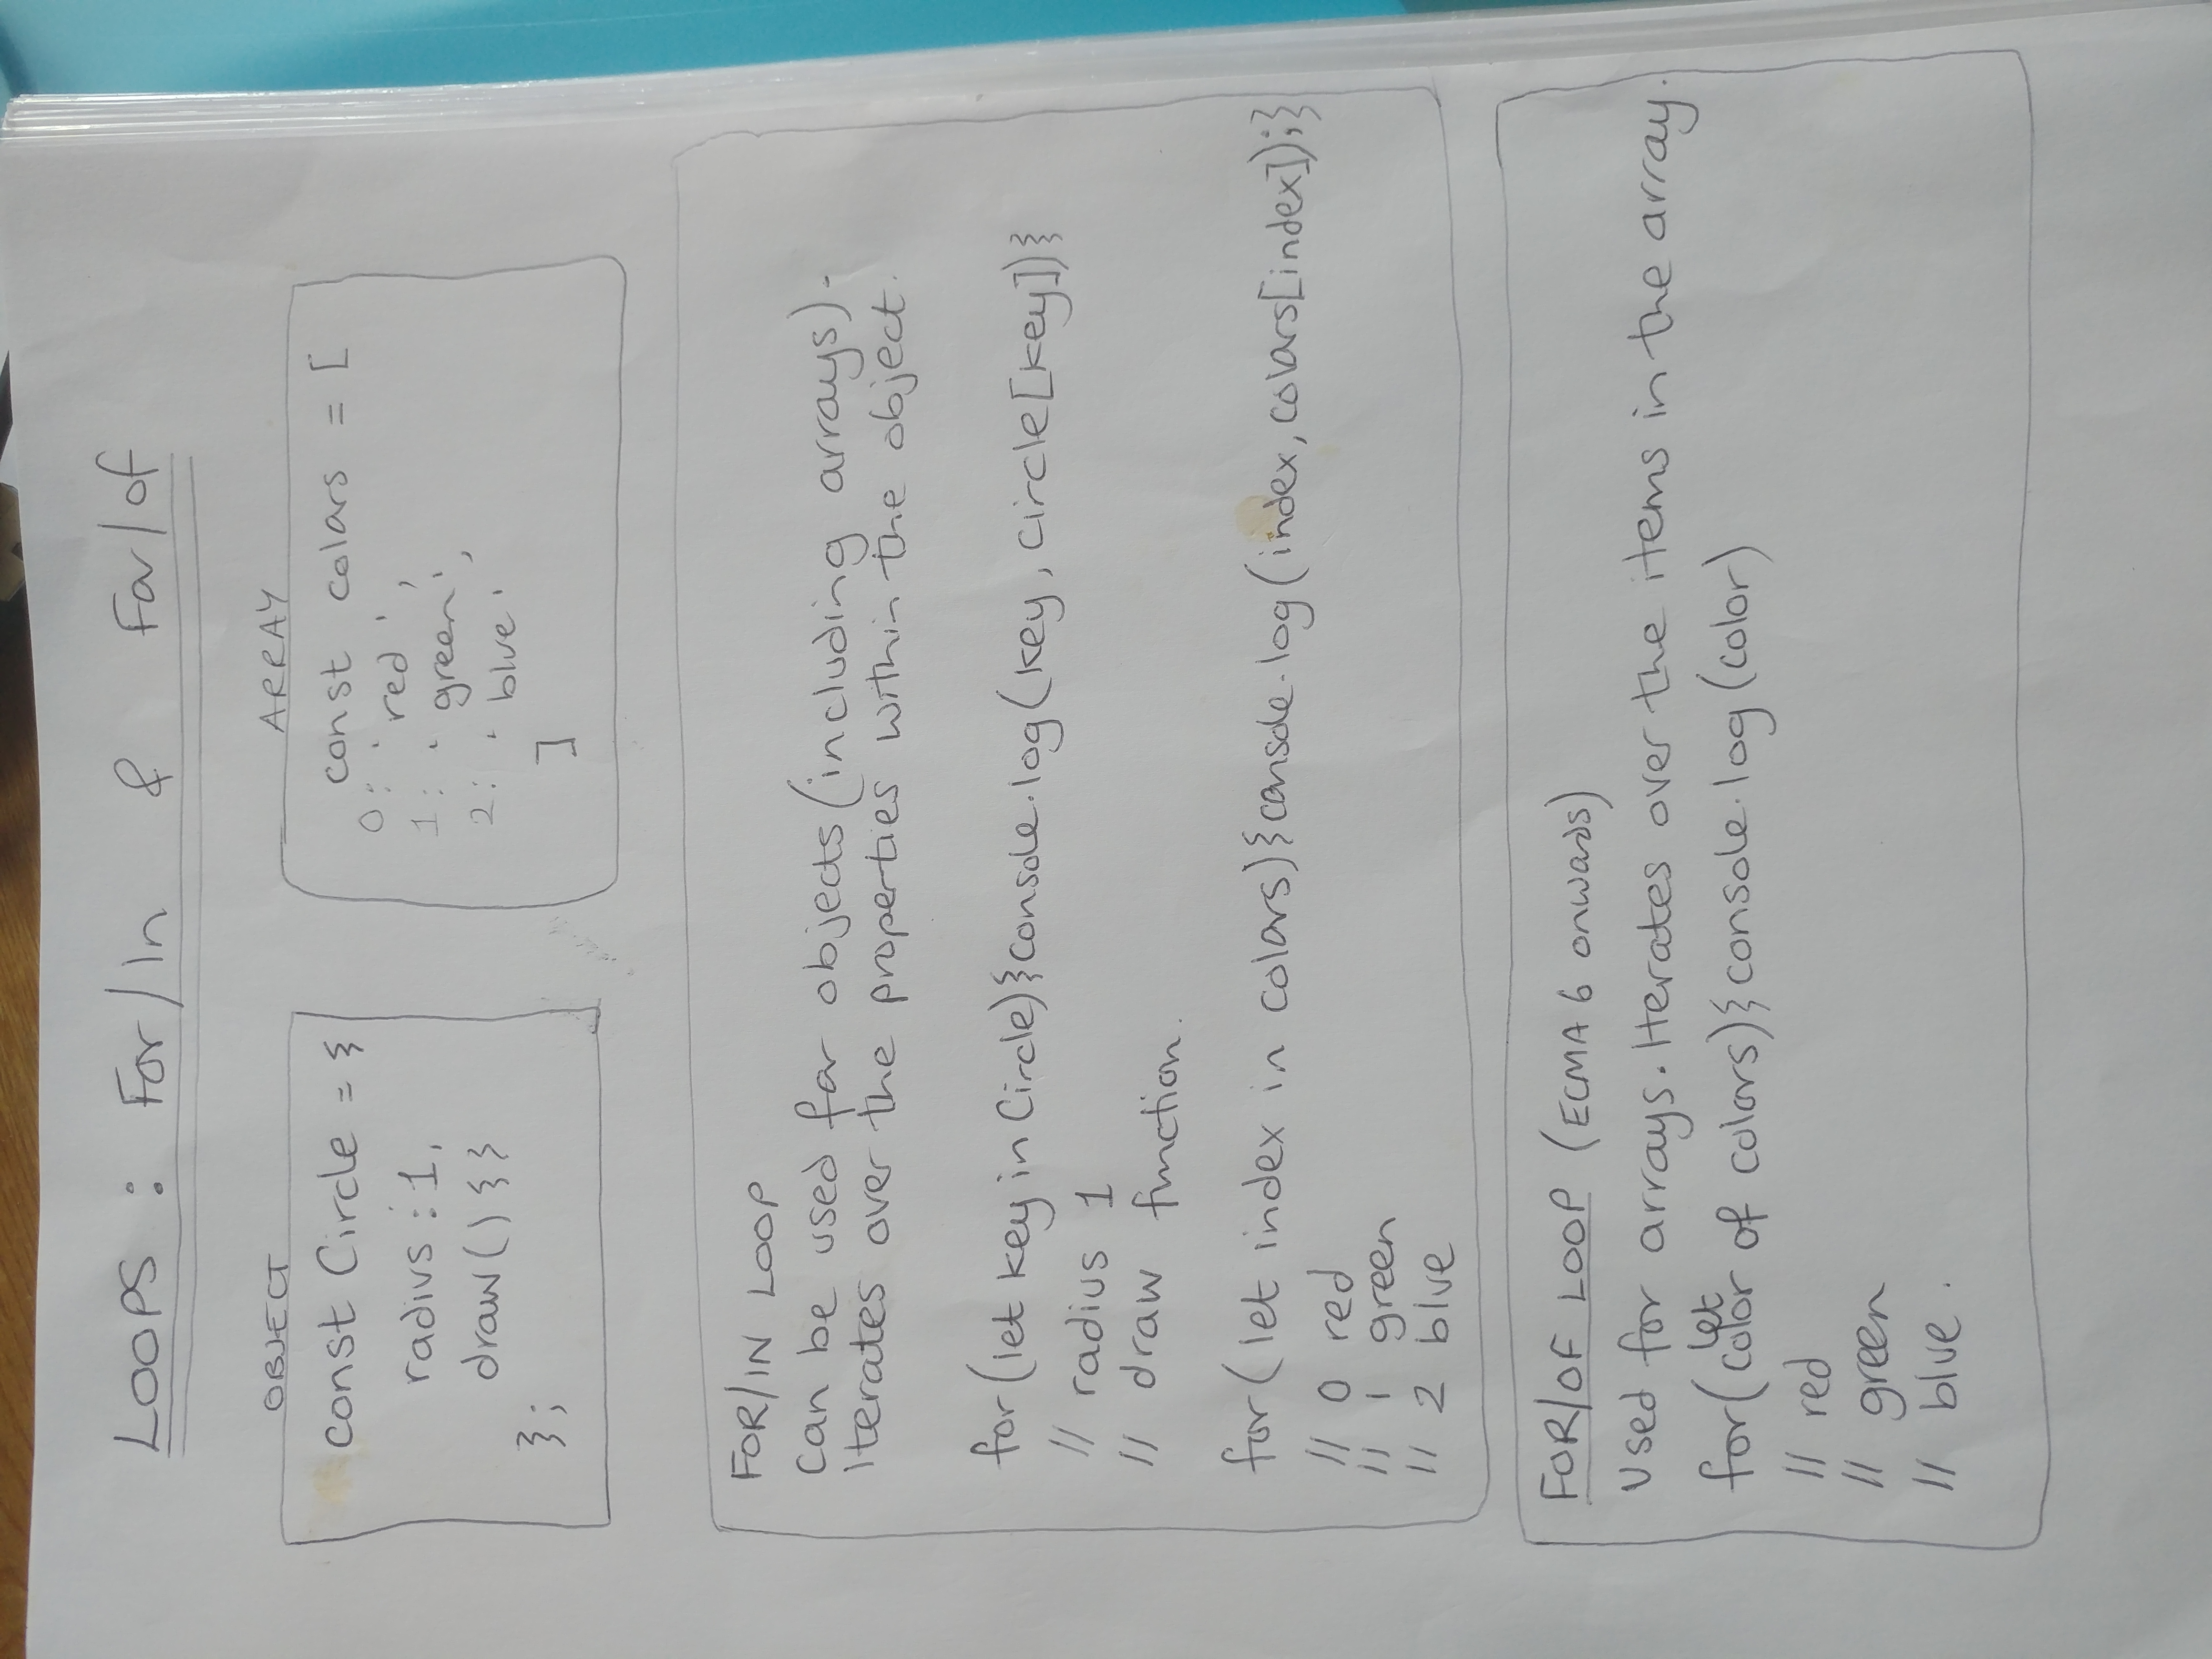 LOOPS : For/In & For/of
OBJECT
const Circle = {
radius : 1,
draw() {}
};
ARRAY
const colors = [
0: 'red',
1: 'green',
2: 'blue'
]
FOR/IN LOOP
Can be used for objects (including arrays).
Iterates over the properties within the object.
for(let key in Circle){console.log(key, circle[key])}
// radius 1
// draw function.
for(let index in colors){console.log(index,colors[index]);}
// 0 red
// 1 green
// 2 blue
FOR/OF LOOP (ECMA 6 onwards)
Used for arrays. Iterates over the items in the array.
for(let color of colors){console.log(color)
// red
// green
// blue.